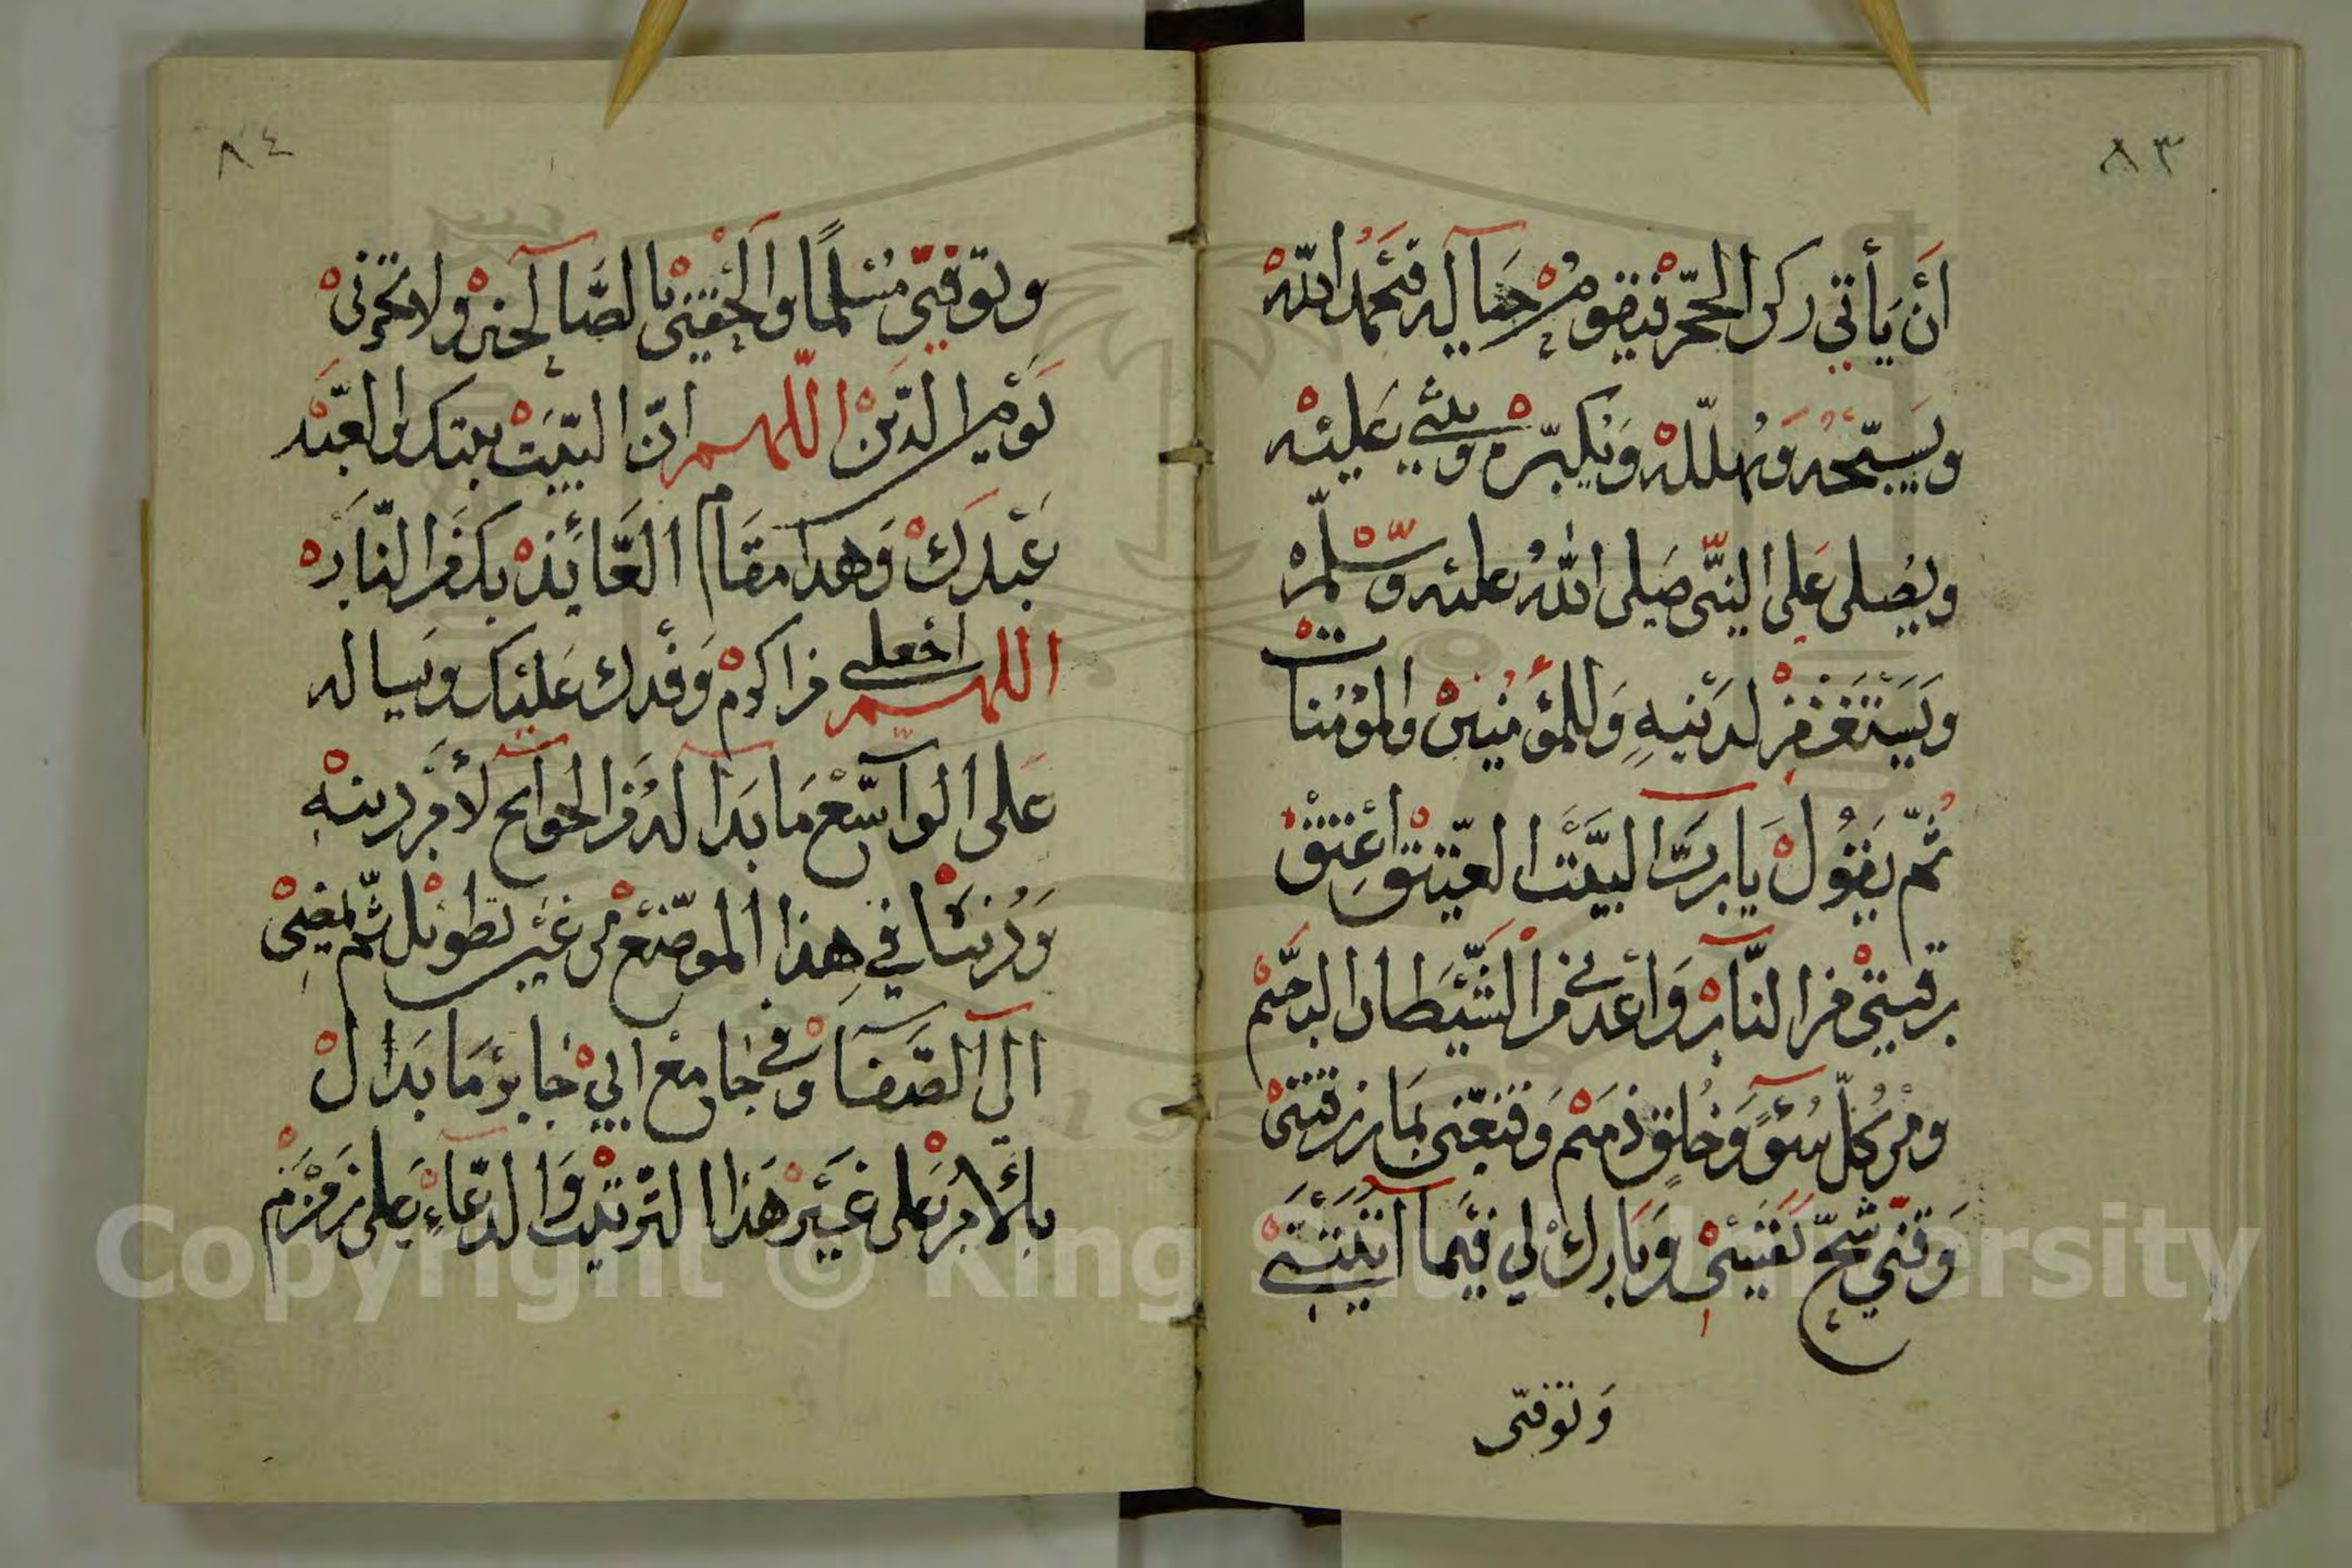 ٨٣
أَن يَأتي ركن الحجر فيقوم حياله فَيَحْمَد اللّهْ
ويسبّحه وَيُهللهْ وَيُكبّرهْ ويثني عَليْه
ويُصلى عَلى النبّى صَلى اللّهُ عليْه وَسّلمّْ
ويَسْتَغْفِرْ لذَنبِهِ وَللمؤمنينْ والمؤمنات
ثُمّ يَقُولْ يَا ربّ البَيْت العَتيقْ اَعْتِقْ
رقبتىْ من النّارْ وَاَعْذنى من الشّيْطان الرجيْم
ومن كُلّ سُوءٍ وَخُلقٍ ذميْم وَقنعّنى بمَا رزقتنىْ
وَقنّي شُحّ نفسىْ وَبَارك لي فيْمآ اَتيْتَنى
وَتوفنّى
٨٤
وتوفنّى مُسْلمًا والحْقنىْ بالصَّالحينْ ولا تخزنىْ
يَوْم الدّينْ اللّهم انّ البَيْتْ بيتك والعَبْد
عَبْدكْ وَهذا مقَام العَائذْ بكَ من النّارْ
اللهم اجعلنى من اكرمْ وَفْدك عَليْك وَيساله
عَلى الوآسّعْ مَا بَدَا لهُ من الحوآيج لأمْر دينهِ
وَدُنيَاْ في هِذا الموضعْ من غيْر تطويْل ثمّ يمضىْ
الى الصّفَا وْفى جَامعْ ابيْ جَابرْ مَا بَدَا لْ
بالأمْر عَلى غيْر هَذا الترتيبْ وَالدّعَاءْ عَلى زمْزَمْ
Copyright © King Saud University
195